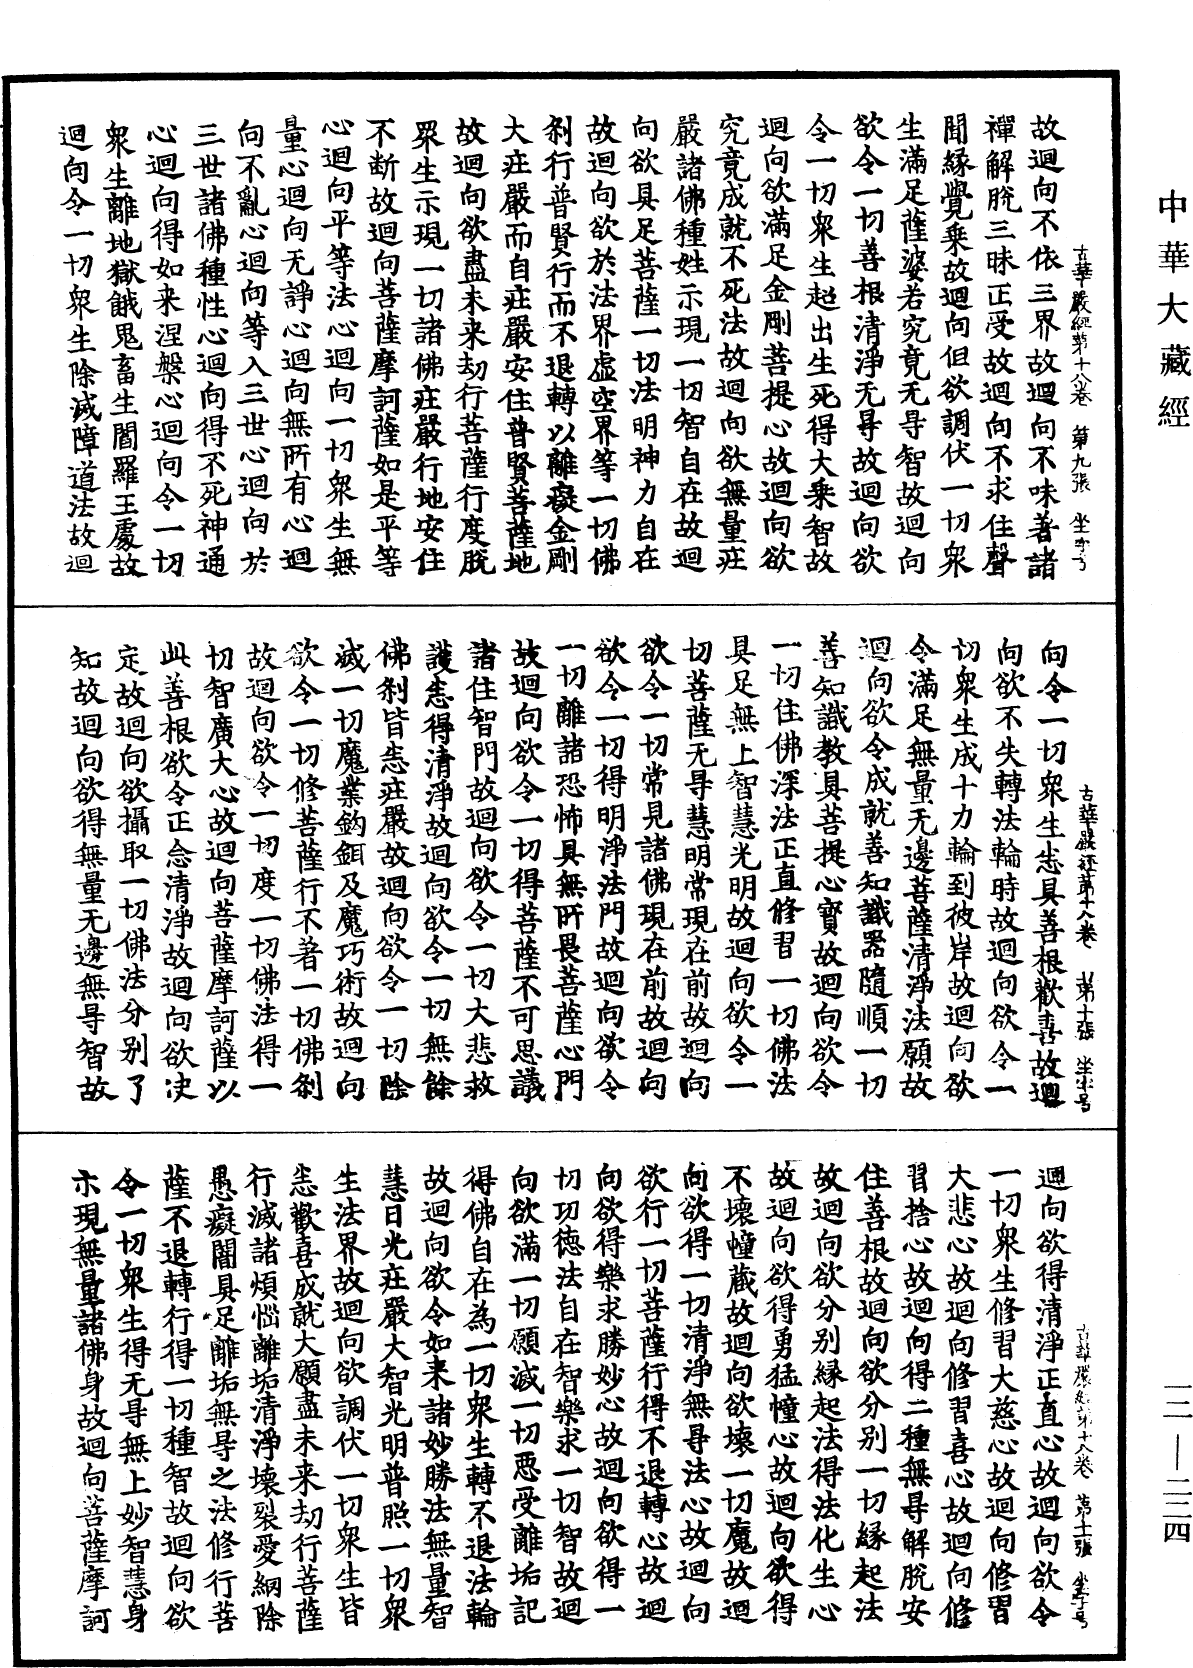 中華大藏經
古華嚴經第十八卷　第九張　坐字号
故迴向不依三界故迴向不味善諸
禪解脫三昧正受故迴向不求住聲
聞緣覺乘故迴向但欲調伏一切衆
生滿足薩婆若究竟无㝵智故迴向
欲令一切善根清淨无㝵故迴向欲
令一切衆生超出生死得大乘智故
迴向欲滿足金剛菩提心故迴向欲
究竟成就不死法故迴向欲無量莊
嚴諸佛種姓示現一切智自在故迴
向欲具足菩薩一切法明神力自在
故迴向欲於法界虛空界等一切佛
刹行普賢行而不退轉以離癡金剛
大莊嚴而自莊嚴安住普賢菩薩地
故迴向欲盡未来劫行菩薩行度脫
衆生示現一切諸佛莊嚴行地安住
不断故迴向菩薩摩訶薩如是平等
心迴向平等法心迴向一切衆生無
量心迴向无諍心迴向無所有心迴
向不亂心迴向等入三世心迴向於
三世諸佛種性心迴向得不死神通
心迴向得如来涅槃心迴向令一切
衆生離地獄餓鬼畜生閻羅王處故
迴向令一切衆生除滅障道法故迴
古華嚴經第十八卷　第十張　坐字号
向令一切衆生悉具善根歡喜故迴
向欲不失轉法輪時故迴向欲令一
切衆生成十力輪到彼岸故迴向欲
令滿足無量无邊菩薩清淨法願故
迴向欲令成就善知識器隨順一切
善知識教具菩提心寶故迴向欲令
一切住佛深法正直修習一切佛法
具足無上智慧光明故迴向欲令一
切菩薩无㝵慧明常現在前故迴向
欲令一切常見諸佛現在前故迴向
欲令一切得明淨法門故迴向欲令
一切離諸恐怖具無所畏菩薩心門
故迴向欲令一切得菩薩不可思議
諸住智門故迴向欲令一切大悲救
護悉得清淨故迴向欲令一切無餘
佛刹皆悉莊嚴故迴向欲令一切除
滅一切魔業鈎餌及魔巧術故迴向
欲令一切修菩薩行不著一切佛刹
故迴向欲令一切度一切佛法得一
切智廣大心故迴向菩薩摩訶薩以
此善根欲令正念清淨故迴向欲决
定故迴向欲攝取一切佛法分别了
知故迴向欲得無量无邊無㝵智故
古華嚴經第十八卷　第十一張　坐字号
迴向欲得清淨正直心故迴向欲令
一切衆生修習大慈心故迴向修習
大悲心故迴向修習喜心故迴向修
習捨心故迴向得二種無㝵解脫安
住善根故迴向欲分别一切緣起法
故迴向欲分别緣起法得法化生心
故迴向欲得勇猛幢心故迴向欲得
不壞幢藏故迴向欲壞一切魔故迴
向欲得一切清淨無㝵法心故迴向
欲行一切菩薩行得不退轉心故迴
向欲得樂求勝妙心故迴向欲得一
切功德法自在智樂求一切智故迴
向欲滿一切願滅一切惡受離垢記
得佛自在為一切衆生轉不退法輪
故迴向欲令如来諸妙勝法無量智
慧日光莊嚴大智光明普照一切衆
生法界故迴向欲調伏一切衆生皆
悉歡喜成就大願盡未来劫行菩薩
行滅諸煩惱離垢清淨壞裂愛網除
愚癡闇具足離垢無㝵之法修行菩
薩不退轉行得一切種智故迴向欲
令一切衆生得无㝵無上妙智慧身
示現無量諸佛身故迴向菩薩摩訶
一二—二二四